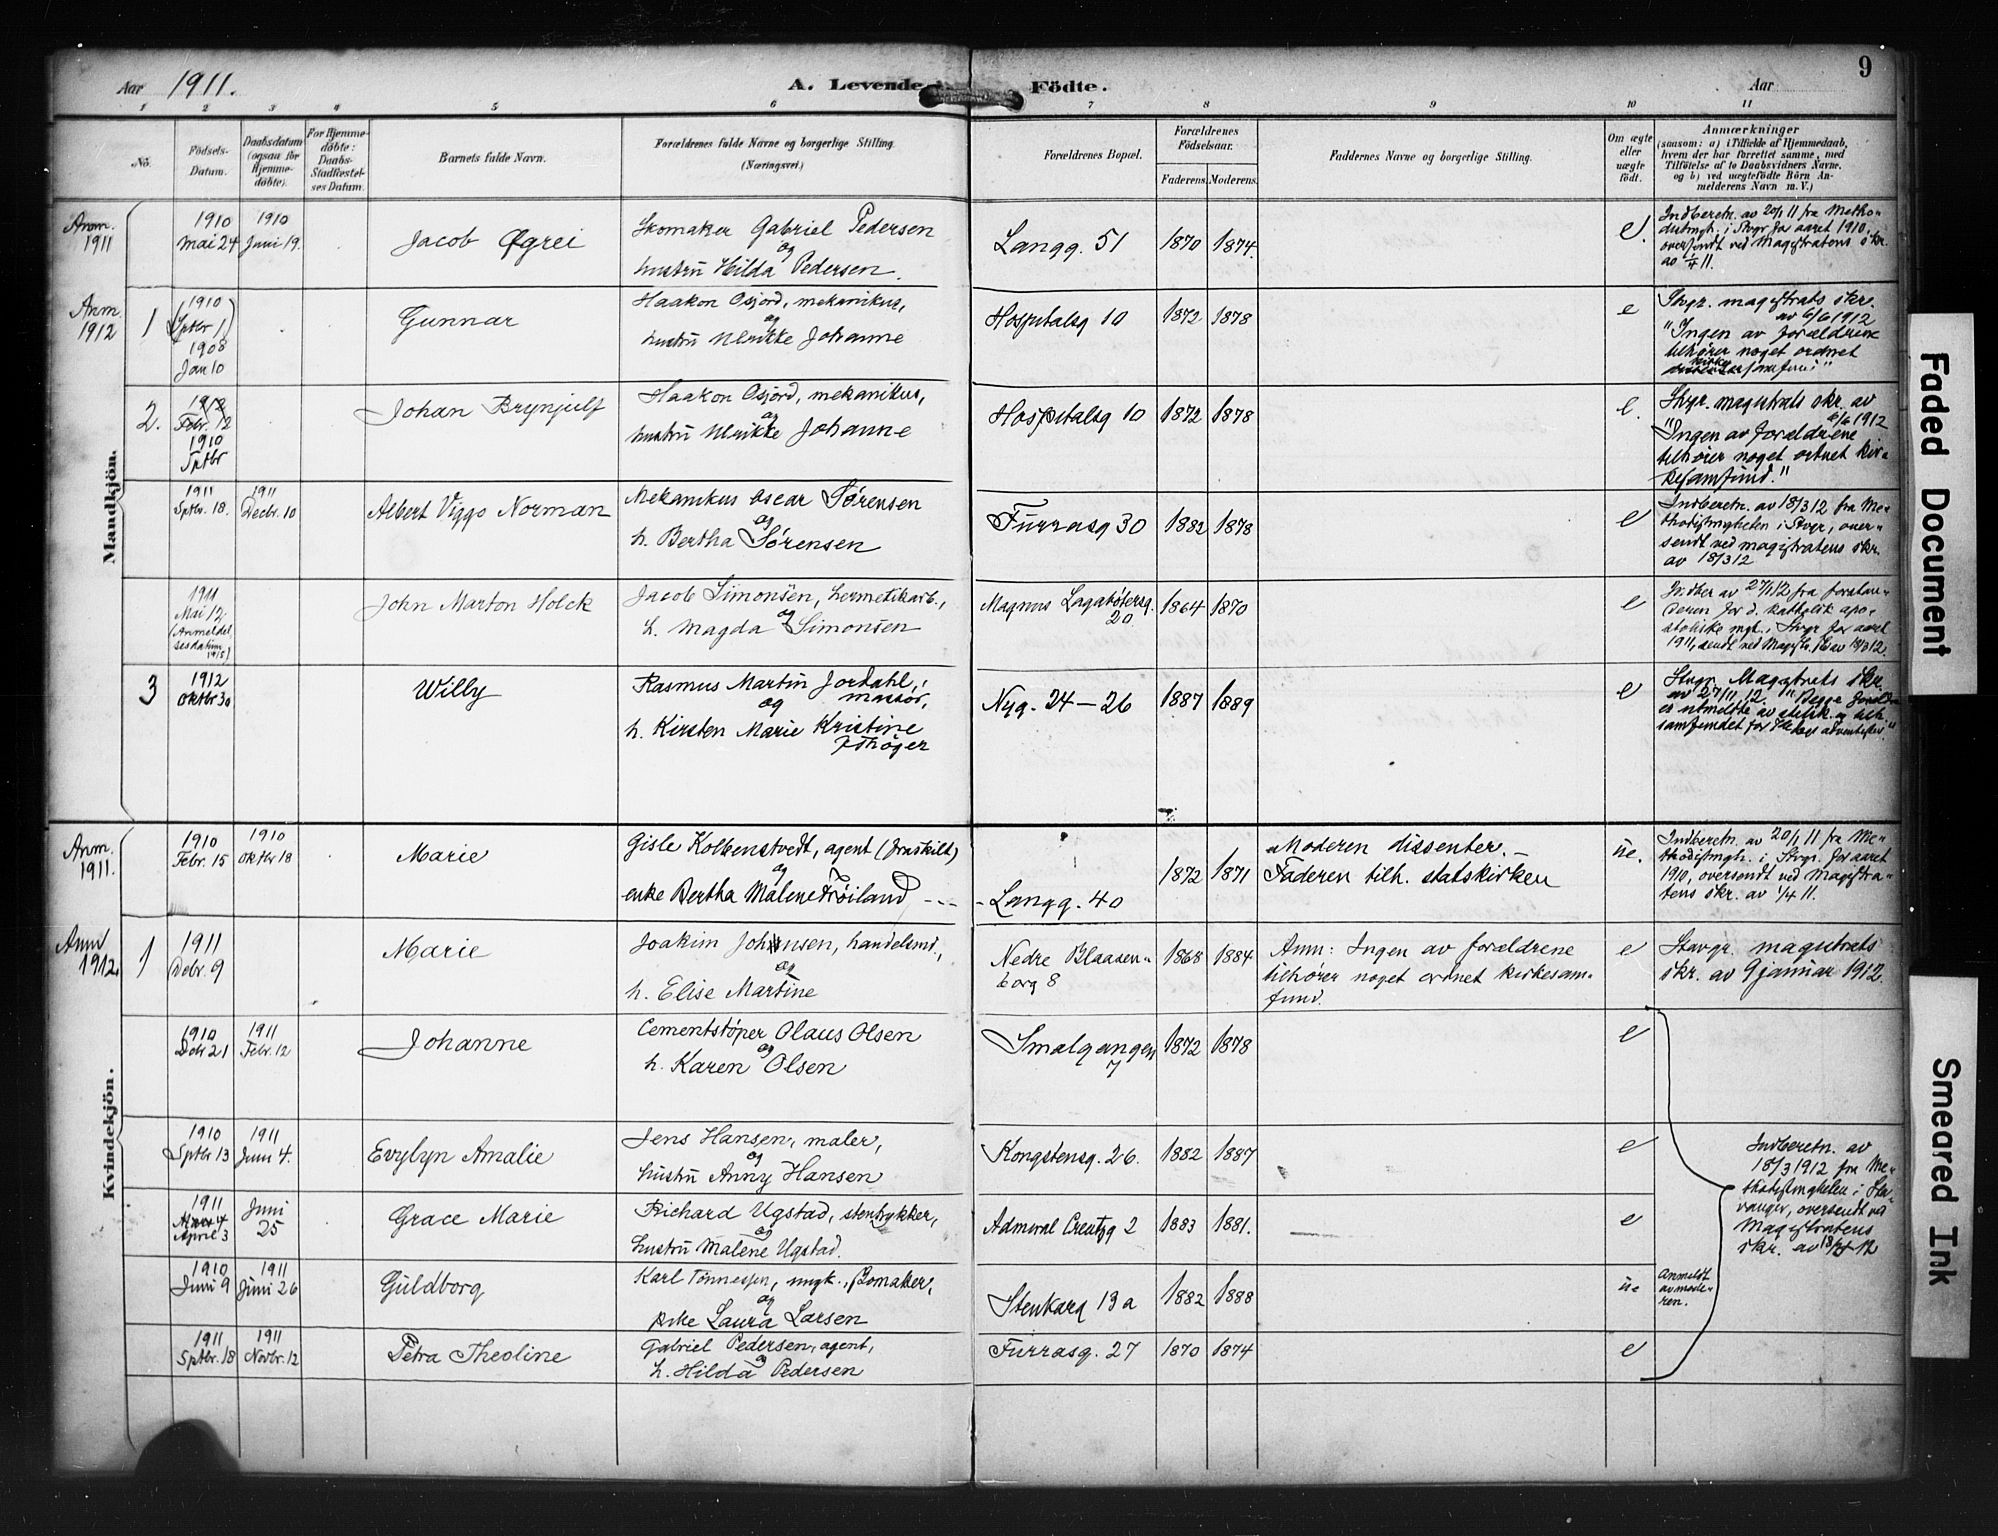 Aar 1911. A. Levende Födte. Aar 9
1 2 3 4 5 6 7 8 9 10 11
No. Födsels-Datum. Daabsdatum (ogsaa för Hjemme-döbte). For Hjemme-döbte: Daabs-Stadfæstel-ses Datum. Barnets fulde Navn. Forældrenes fulde Navne og borgerlige Stilling. (Næringsvei.) Forældrenes Bopæl. Forældrenes Födselsaar. Faderens. Moderens. Faddernes Navne og borgerlige Stilling. Om ægte eller uægte födt. Anmærkninger
(saasom: a) i Tilfælde af Hjemmedaab,
hvem der har forrettet samme, med
Tilföielse af to Daabsvidners Navne.
og b) ved uægtefödte Börn An-
melderens Navn m. V.)
Mandkjön.
Anm. 1911
1910 Mai 24
1910 Juni 19.
Jacob Øgrei
Skomaker Gabriel Pedersen
og
hustru Hilda Pedersen.
Langg. 51
1870 1874.
e.
Indberetn. av 20/1 11 fra Metho-
distmgh. i Stvgr for aaret 1910,
oversendt ved Magistratens skr.
av 1/4 11.
Anm. 1912
1
(1910 Sptbr 1)
1908 Jan 10
Gunnar
Haakon Osjord, mekanikus,
og
hustru Ulrikke Johanne
Hospitalsg 10
1872 1878
e
Stvgr. magistrats skr.
av 6/6 1912
"Ingen av forældrene
tilhører noget ordnet
kirke
samfund"
2.
1912 Febr. 12
1910 Sptbr
Johan Brynjulf
Haakon Osjord, mekanikus,
og
hustru Ulrikke Johanne
Hospitalsg 10
1872 1878
e.
Stvgr. magistrats skr. av
6/6 1912
"Ingen av forældrene
tilhører noget ordnet kir-
kesamfund."
1911 Sptbr. 18.
1911 Decbr. 10
Albert Viggo Norman
Mekanikus Oscar Sørensen
og
h. Bertha Sørensen
Furrasg 30
1882 1878
e
Indberetn. av 18/3 12 fra Me-
thodistmgheten i Stvgr, over-
sendt ved magistratens skr.
av 18/3 12
1911 Mai 12,
(Anmeldel
sesdatum
1915)
John Marton Holck
Jacob Simonsen, hermetikarb.,
og
h. Magda Simonsen
Magnus Lagabøtersg.
20
1864 1870
e
Indber av 27/1 12 fra forstan-
deren for d. katholik apo-
stoliske mgt. i Stvgr for aaret
1911, sendt ved Magistr.
3
1912 Oktbr 30
Willy
Rasmus Martin Jordahl,
massør,
og
h. Kirsten Marie Kristine
Nyg. 24 - 26
1887 1889
e
Stvgr. Magistrats skr.
av 27/11 12. "Begge forældre
er utmeldte av statsk. og tilh.
samfundet for
adventister."
Kvindekjön.
Anm. 1911.
1910 Febr. 15
1910 Oktbr 18
Marie
Gisle Kolbenstvedt, agent (fraskilt)
og
enke Bertha Malene Frøiland
Langg. 40
1872 1871
Moderen dissenter. -
Faderen tilh. statskirken
ue.
Indberetn. av 20/1 11 fra Me-
thodistmgh. i Stvgr. for aaret
1910, oversendt ved Magistra-
tens skr. av 1/4 11.
Anm 1912.
1
1911 Dcbr. 9
Marie
Joakim Johnsen, handelsmd.,
og
h. Elise Martine
Nedre Blaasen-
borg 8
1868 1884
Anm: Ingen av forældrene
tilhører noget ordnet kirkesam-
fund.
e
Stavgr. magistrats
skr. av 9 januar 1912.
1910 Dcbr 21
1911 Febr. 12
Johanne
Cementstøper Olaus Olsen
og
h. Karen Olsen
Smalgangen
7
1872 1878
e
1910 Sptbr 13
1911 Juni 4.
Evylyn Amalie
Jens Hansen, maler,
og
hustru Anny Hansen
Kongstensg. 26.
1882 1887
e
Indberetn. av
18/3 1912 fra Me-
thodistmgheten i Sta-
vanger, oversendt ved
Magistratens
skr. av
1911 April 3
Juni 25
Grace Marie
Richard Ugstad, stentrykker,
og
hustru Malene Ugstad.
Admiral Creutzg 2
1883 1881.
e
1910 Juni 9
1911 Juni 26
Guldborg
Karl Tønnessen, ungk., skomaker,
og
pike Laura Larsen
Stenkarg 13 a
1882 1888
ue
Anmeldt
av mode-
ren.
1911 Sptbr. 18
1911 Novbr. 12
Petra Theoline
Gabriel Pedersen, agent,
og
h. Hilda Pedersen
Furrasg. 27
1870 1874
e
Faded Document
Smeared Ink